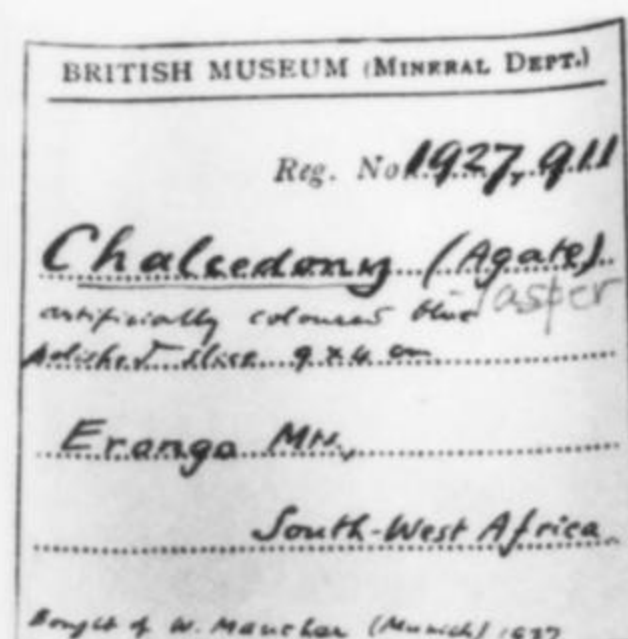 BRITISH MUSEUM (MINERAL DEPT.)
Reg. No. 1927, 911
Chalcedony (Agate)
Jasper
artificially coloured blue
polished slice 9 x 4 cm
Erongo Mts.,
South-West Africa
Bought of W. Maucher (Munich) 1927